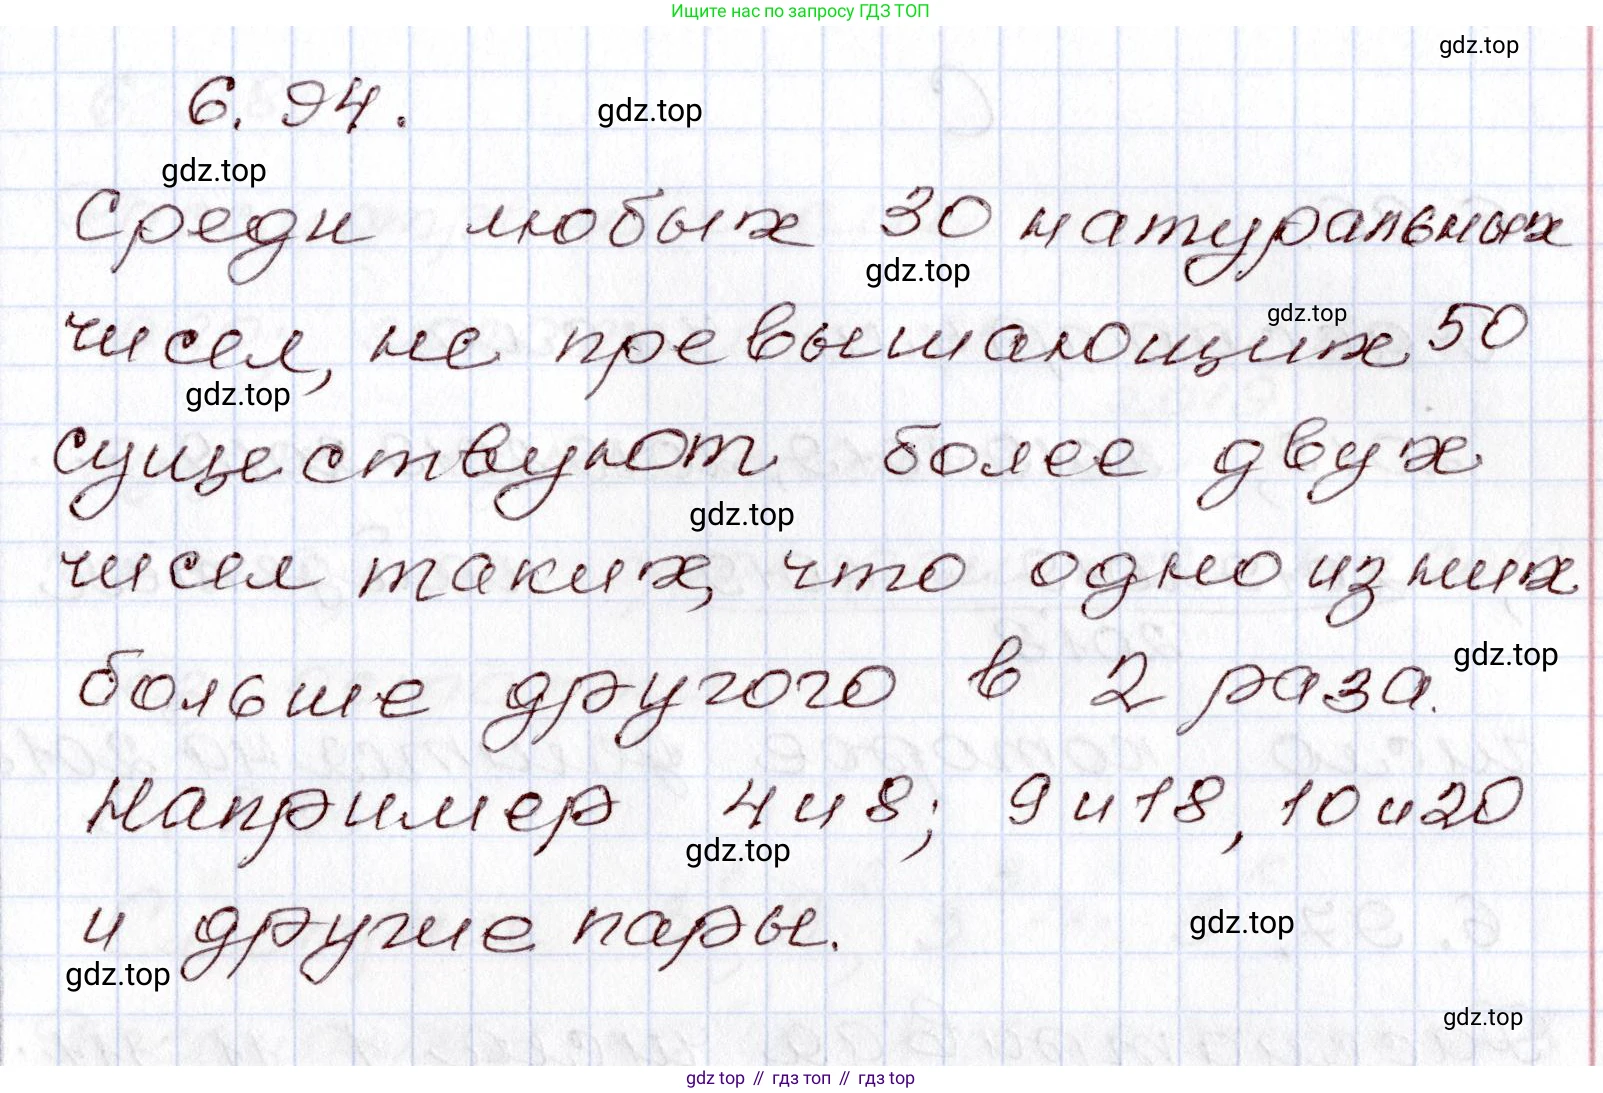 Ищите нас по запросу ГДЗ ТОП
gdz.top
6.94.
gdz.top
gdz.top
Среди любых 30 натуральных
gdz.top
gdz.top
чисел, не превышающих 50
gdz.top
существуют более двух
gdz.top
чисел таких, что одно из них
gdz.top
больше другого в 2 раза.
Например 4 и 8; 9 и 18, 10 и 20
gdz.top
и другие пары.
gdz.top
gdz.top
gdz.top
gdz top // гдз топ // gdz.top